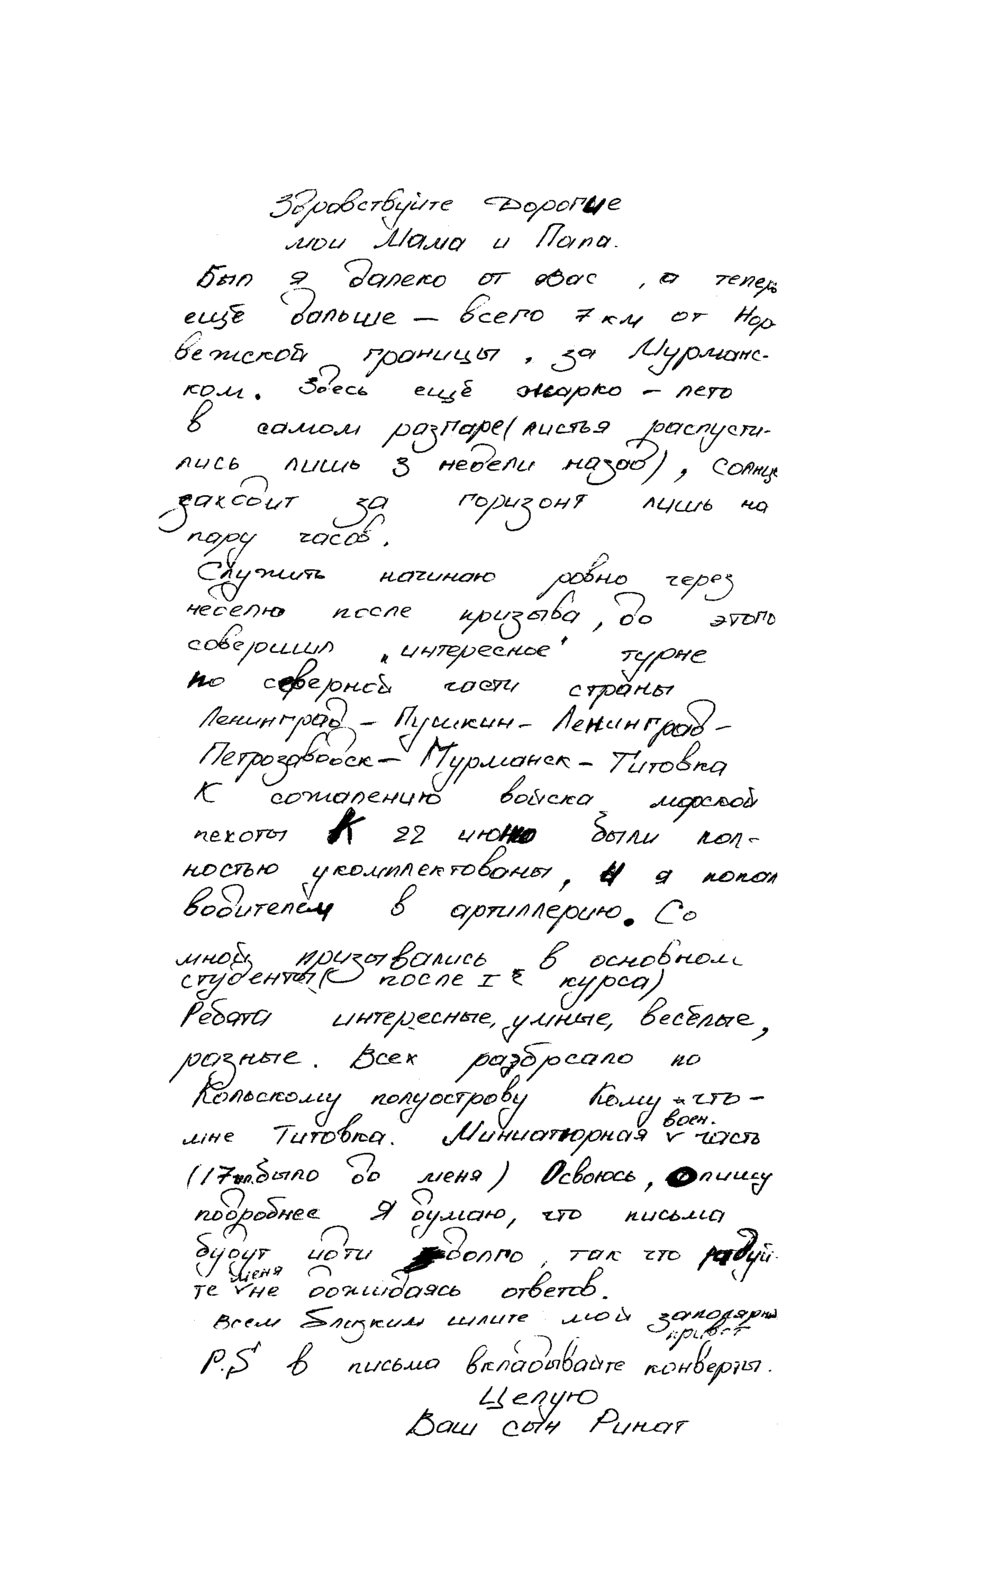 Здравствуйте Дорогие
мои Мама и Папа.
Был я далеко от Вас, а теперь
ещё дальше — всего 7 км от Нор
вежской границы, за Мурманс-
ком. Здесь ещё жарко – лето
в самом разгаре (листья распусти-
лись лишь 3 недели назад), солнце
заходит за горизонт лишь на
пару часов.
Служить начинаю ровно через
неделю после призыва, до этого
совершил „интересное" турне
по северной части страны
Ленинград – Пушкин – Ленинград –
Петрозаводск – Мурманск – Титовка
К сожалению войска морской
пехоты К 22 июню были пол-
ностью укомплектованы, и я попал
водителем в артиллерию. Со
мной призывались в основном
студенты (после I курса)
Ребята интересные, умные, весёлые,
разные. Всех разбросало по
Кольскому полуострову Кому – что –
мне Титовка. Миниатюрная воен. часть
(17 было до меня) Освоюсь, опишу
подробнее Я думаю, что письма
будут идти долго, так что радуй-
те меня не дожидаясь ответов.
Всем близким шлите мой заполярный
привет
P.S в письма вкладывайте конверты.
Целую
Ваш сын Ринат